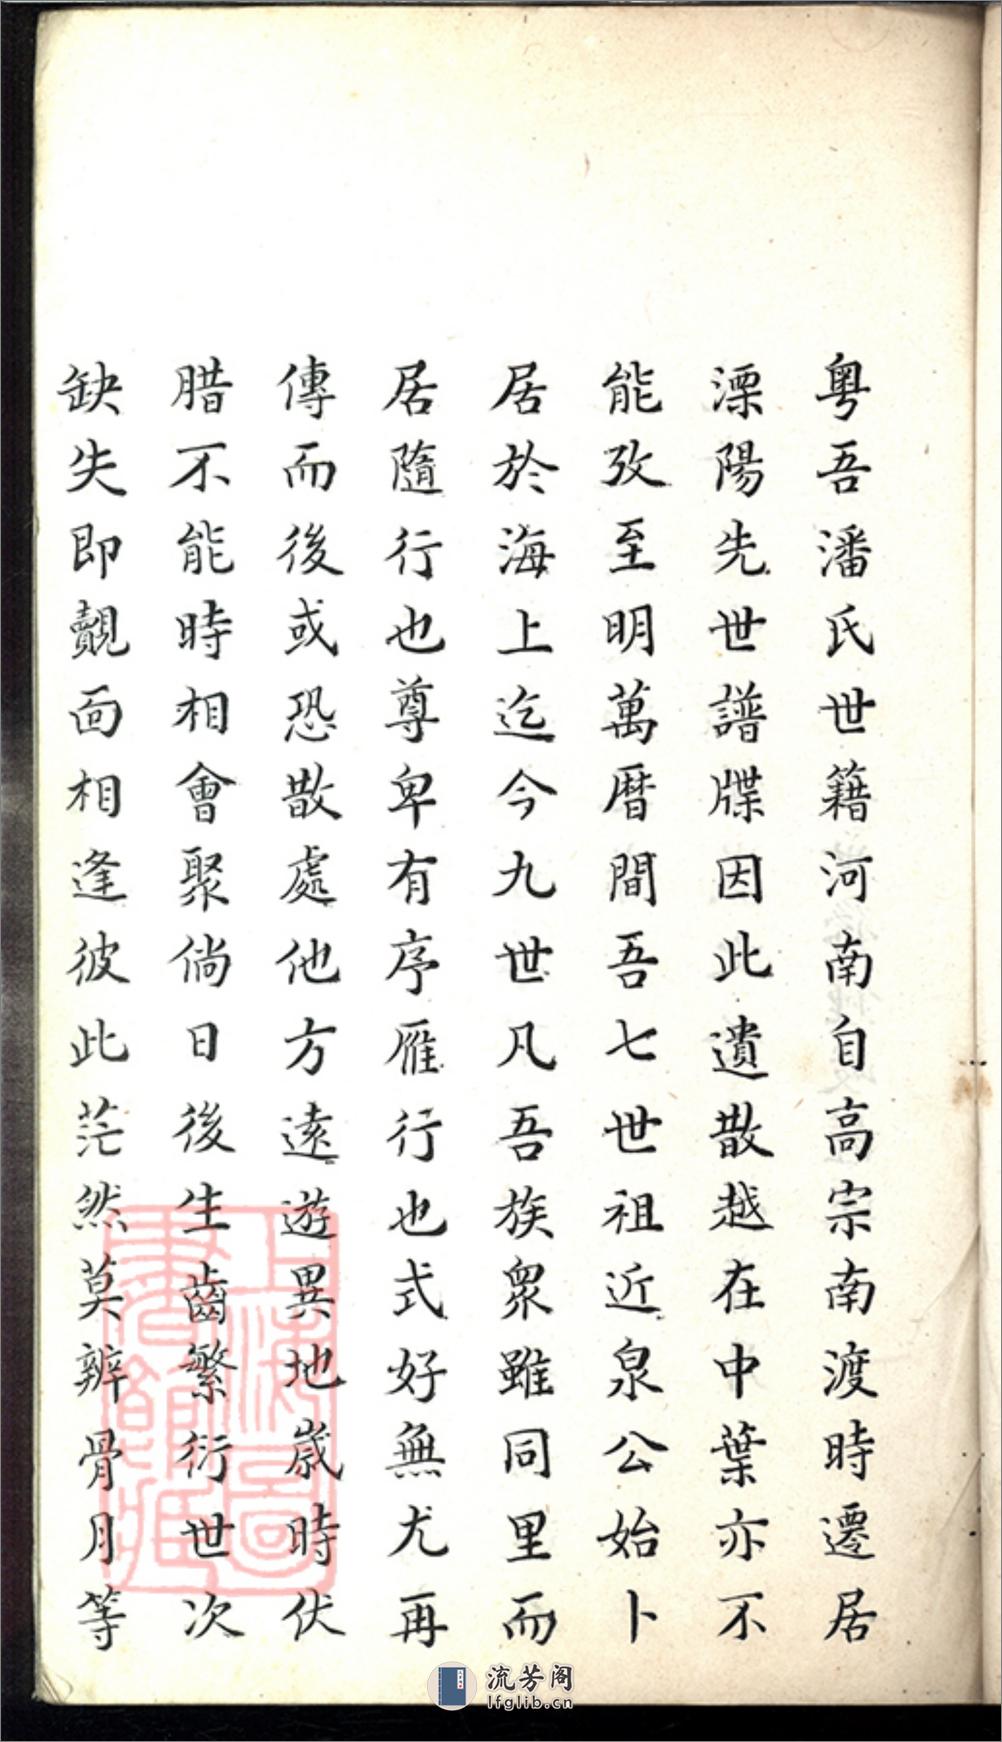 粤吾潘氏世籍河南自高宗南渡時遷居
溧陽先世譜牒因此遺散越在中葉亦不
能攷至明萬曆間吾七世祖近泉公始卜
居於海上迄今九世凡吾族衆雖同里而
居隨行也尊卑有序雁行也式好無尤再
傳而後或恐散處他方遠遊異地歲時伏
腊不能時相會聚倘日後生齒繁衍世次
缺失即覿面相逢彼此茫然莫辨骨月等
上海圖書館藏
流芳阁
lfglib.cn